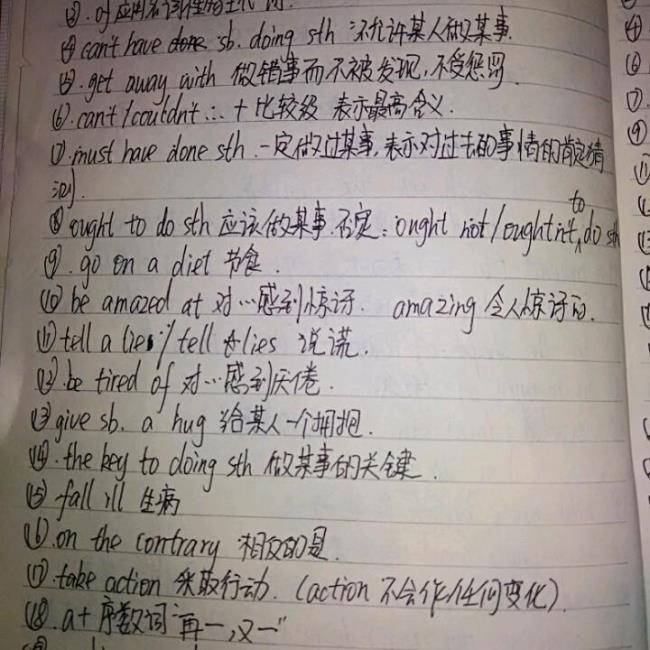 ③. of 应用名词性的主代词
④ can't have done sb. doing sth 不允许某人做某事.
⑤. get away with 做错事而不被发现,不受惩罚
⑥. can't/couldn't … + 比较级 表示最高含义.
⑦. must have done sth. 一定做过某事,表示对过去的事情的肯定猜
测.
⑧ ought to do sth 应该做某事.否定: ought not/oughtn't to do sth
⑨. go on a diet 节食.
⑩ be amazed at 对…感到惊讶. amazing 令人惊讶的.
⑪ tell a lies / tell lies 说谎.
⑫. be tired of 对…感到厌倦.
⑬ give sb. a hug 给某人一个拥抱.
⑭. the key to doing sth 做某事的关键.
⑮ fall ill 生病
⑯. on the contrary 相反的是.
⑰. take action 采取行动. (action 不会作任何变化).
⑱. a+ 序数词 "再一,又一"